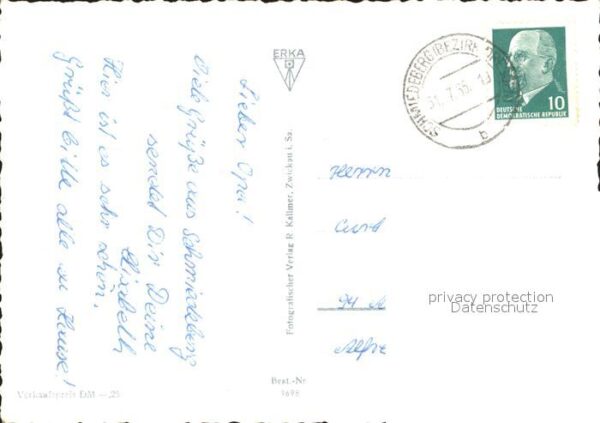 Lieber Opa!
Viele Grüße aus Schmiedeberg
sendet Dir Deine
Elisabeth
Hier ist es sehr schön.
Grüßt bitte alle zu Hause!
ERKA
Fotografischer Verlag R. Kallmer, Zwickau i. Sa.
Best.-Nr
Verkaufspreis DM —,25
SCHMIEDEBERG (BEZIRK
b
10
DEUTSCHE
DEMOKRATISCHE REPUBLIK
Herrn
Curt
privacy protection
Datenschutz